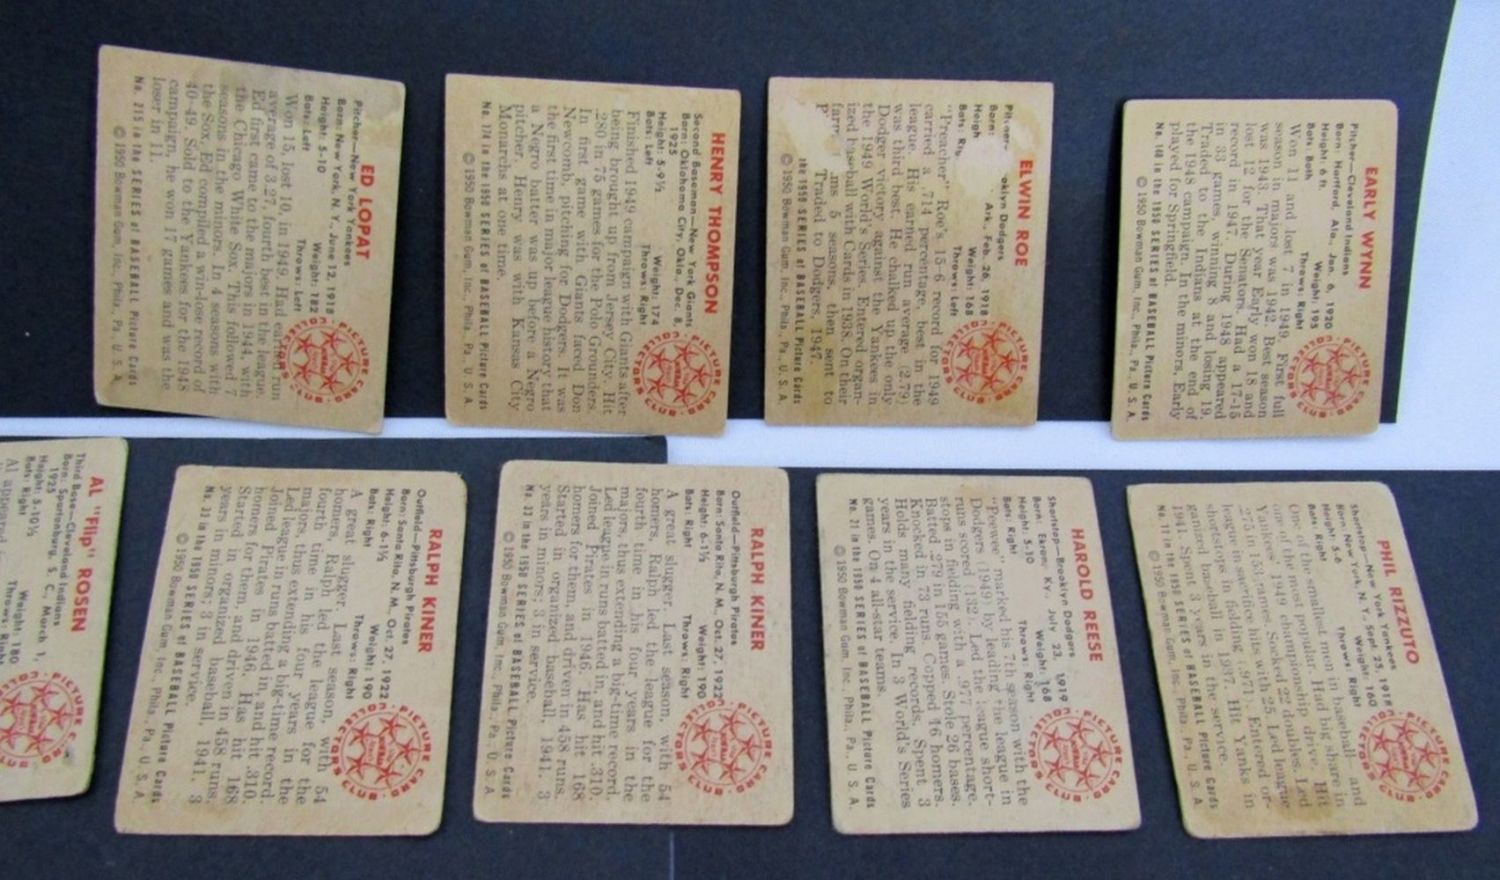 ED LOPAT
Pitcher—New York Yankees
Born: New York, N. Y., June 12, 1918
Height: 5-10 Weight: 182
Bats: Left Throws: Left
Won 15, lost 10, in 1949. Had earned run
average of 3.27, fourth best in the league.
Ed first came to the majors in 1944, with
the Chicago White Sox. This followed 7
seasons in the minors. In 4 seasons with
the Sox, Ed compiled a won-lose record of
40-49. Sold to the Yankees for the 1948
campaign, he won 17 games and was the
loser in 11.
No. 215 in the SERIES of BASEBALL Picture Cards
© 1950 Bowman Gum, Inc., Phila., Pa., U. S. A.
PICTURE CARD COLLECTORS CLUB
HENRY THOMPSON
Second Baseman—New York Giants
Born: Oklahoma City, Okla. Dec. 8,
1925
Height: 5-9½ Weight: 174
Bats: Left Throws: Right
Finished 1949 campaign with Giants after
being brought up from Jersey City. Hit
.280 in 75 games for the Polo Grounders.
In first game with Giants faced Don
Newcomb, pitching for Dodgers. It was
the first time in major league history that
a Negro batter was up before a Negro
pitcher. Henry was with Kansas City
Monarchs at one time.
No. 174 in the 1950 SERIES of BASEBALL Picture Cards
© 1950 Bowman Gum, Inc., Phila., Pa., U. S. A.
PICTURE CARD COLLECTORS CLUB
ELWIN ROE
Pitcher Brooklyn Dodgers
Born: Ark., Feb. 26, 1918
Heigh Weight: 168
Bats: Throws: Left
"Preacher" Roe's 15-6 record for 1949
carried a .714 percentage, best in the
league. His earned run average (2.79)
was third best. He chalked up the only
Dodger victory against the Yankees in
the 1949 World's Series. Entered organ-
ized baseball with Cards in 1938. On their
farm 5 seasons, then sent to
Traded to Dodgers, 1947.
the 1950 SERIES of BASEBALL Picture Cards
© 1950 Bowman Gum, Inc., Phila., Pa., U. S. A.
PICTURE CARD COLLECTORS CLUB
EARLY WYNN
Pitcher—Cleveland Indians
Born: Hartford, Ala., Jan. 6, 1920
Height: 6 ft. Weight: 195
Bats: Both Throws: Right
Won 11 and lost 7 in 1949. First full
season in majors was 1942. Best season
was 1943. That year Early won 18 and
lost 12 for the Senators. Had a 17-15
record in 1947. During 1948 appeared
in 33 games, winning 8 and losing 19.
Traded to the Indians at the end of
the 1948 campaign. In the minors, Early
played for Springfield.
No. 148 in the 1950 SERIES of BASEBALL Picture Cards
© 1950 Bowman Gum, Inc., Phila., Pa., U. S. A.
PICTURE CARD COLLECTORS CLUB
AL "Flip" ROSEN
Third Base—Cleveland Indians
Born: Spartanburg, S. C., March 1,
1925
Height: 5-10½ Weight: 180
Bats: Right Throws: Right
Al appeared in
PICTURE CARD COLLECTORS CLUB
RALPH KINER
Outfield—Pittsburgh Pirates
Born: Santa Rita, N. M., Oct. 27, 1922
Height: 6-1½ Weight: 190
Bats: Right Throws: Right
A great slugger. Last season, with 54
homers, Ralph led the league for the
fourth time in his four years in the
majors, thus extending a big-time record.
Led league in runs batted in, and hit .310.
Joined Pirates in 1946. Has hit 168
homers for them, and driven in 458 runs.
Started in organized baseball, 1941. 3
years in minors; 3 in service.
No. 33 in the 1950 SERIES of BASEBALL Picture Cards
© 1950 Bowman Gum, Inc., Phila., Pa., U. S. A.
PICTURE CARD COLLECTORS CLUB
RALPH KINER
Outfield—Pittsburgh Pirates
Born: Santa Rita, N. M., Oct. 27, 1922
Height: 6-1½ Weight: 190
Bats: Right Throws: Right
A great slugger. Last season, with 54
homers, Ralph led the league for the
fourth time in his four years in the
majors, thus extending a big-time record.
Led league in runs batted in, and hit .310.
Joined Pirates in 1946. Has hit 168
homers for them, and driven in 458 runs.
Started in organized baseball, 1941. 3
years in minors; 3 in service.
No. 33 in the 1950 SERIES of BASEBALL Picture Cards
© 1950 Bowman Gum, Inc., Phila., Pa., U. S. A
PICTURE CARD COLLECTORS CLUB
HAROLD REESE
Shortstop—Brooklyn Dodgers
Born: Ekron, Ky., July 23, 1919
Height: 5-10 Weight: 168
Bats: Right Throws: Right
"Peewee" marked his 7th season with the
Dodgers (1949) by leading the league in
runs scored (132). Led the league short-
stops in fielding with a .977 percentage.
Batted .279 in 155 games. Stole 26 bases.
Knocked in 73 runs. Copped 16 homers.
Holds many fielding records. Spent 3
years in the service. In 3 World's Series
games. On 4 all-star teams.
No. 21 in the 1950 SERIES of BASEBALL Picture Cards
© 1950 Bowman Gum, Inc., Phila., Pa., U. S. A.
PICTURE CARD COLLECTORS CLUB
PHIL RIZZUTO
Shortstop—New York Yankees
Born: New York, N. Y., Sept. 25, 1918
Height: 5-6 Weight: 160
Bats: Right Throws: Right
One of the smallest men in baseball and
one of the most popular. Had big share in
Yankees' 1949 championship drive. Hit
.275 in 153 games. Socked 22 doubles. Led
league in sacrifice hits with 25. Led league
shortstops in fielding (.971). Entered or-
ganized baseball in 1937. Hit Yanks in
1941. Spent 3 years in the service.
No. 11 in the 1950 SERIES of BASEBALL Picture Cards
© 1950 Bowman Gum, Inc., Phila., Pa., U. S. A.
PICTURE CARD COLLECTORS CLUB